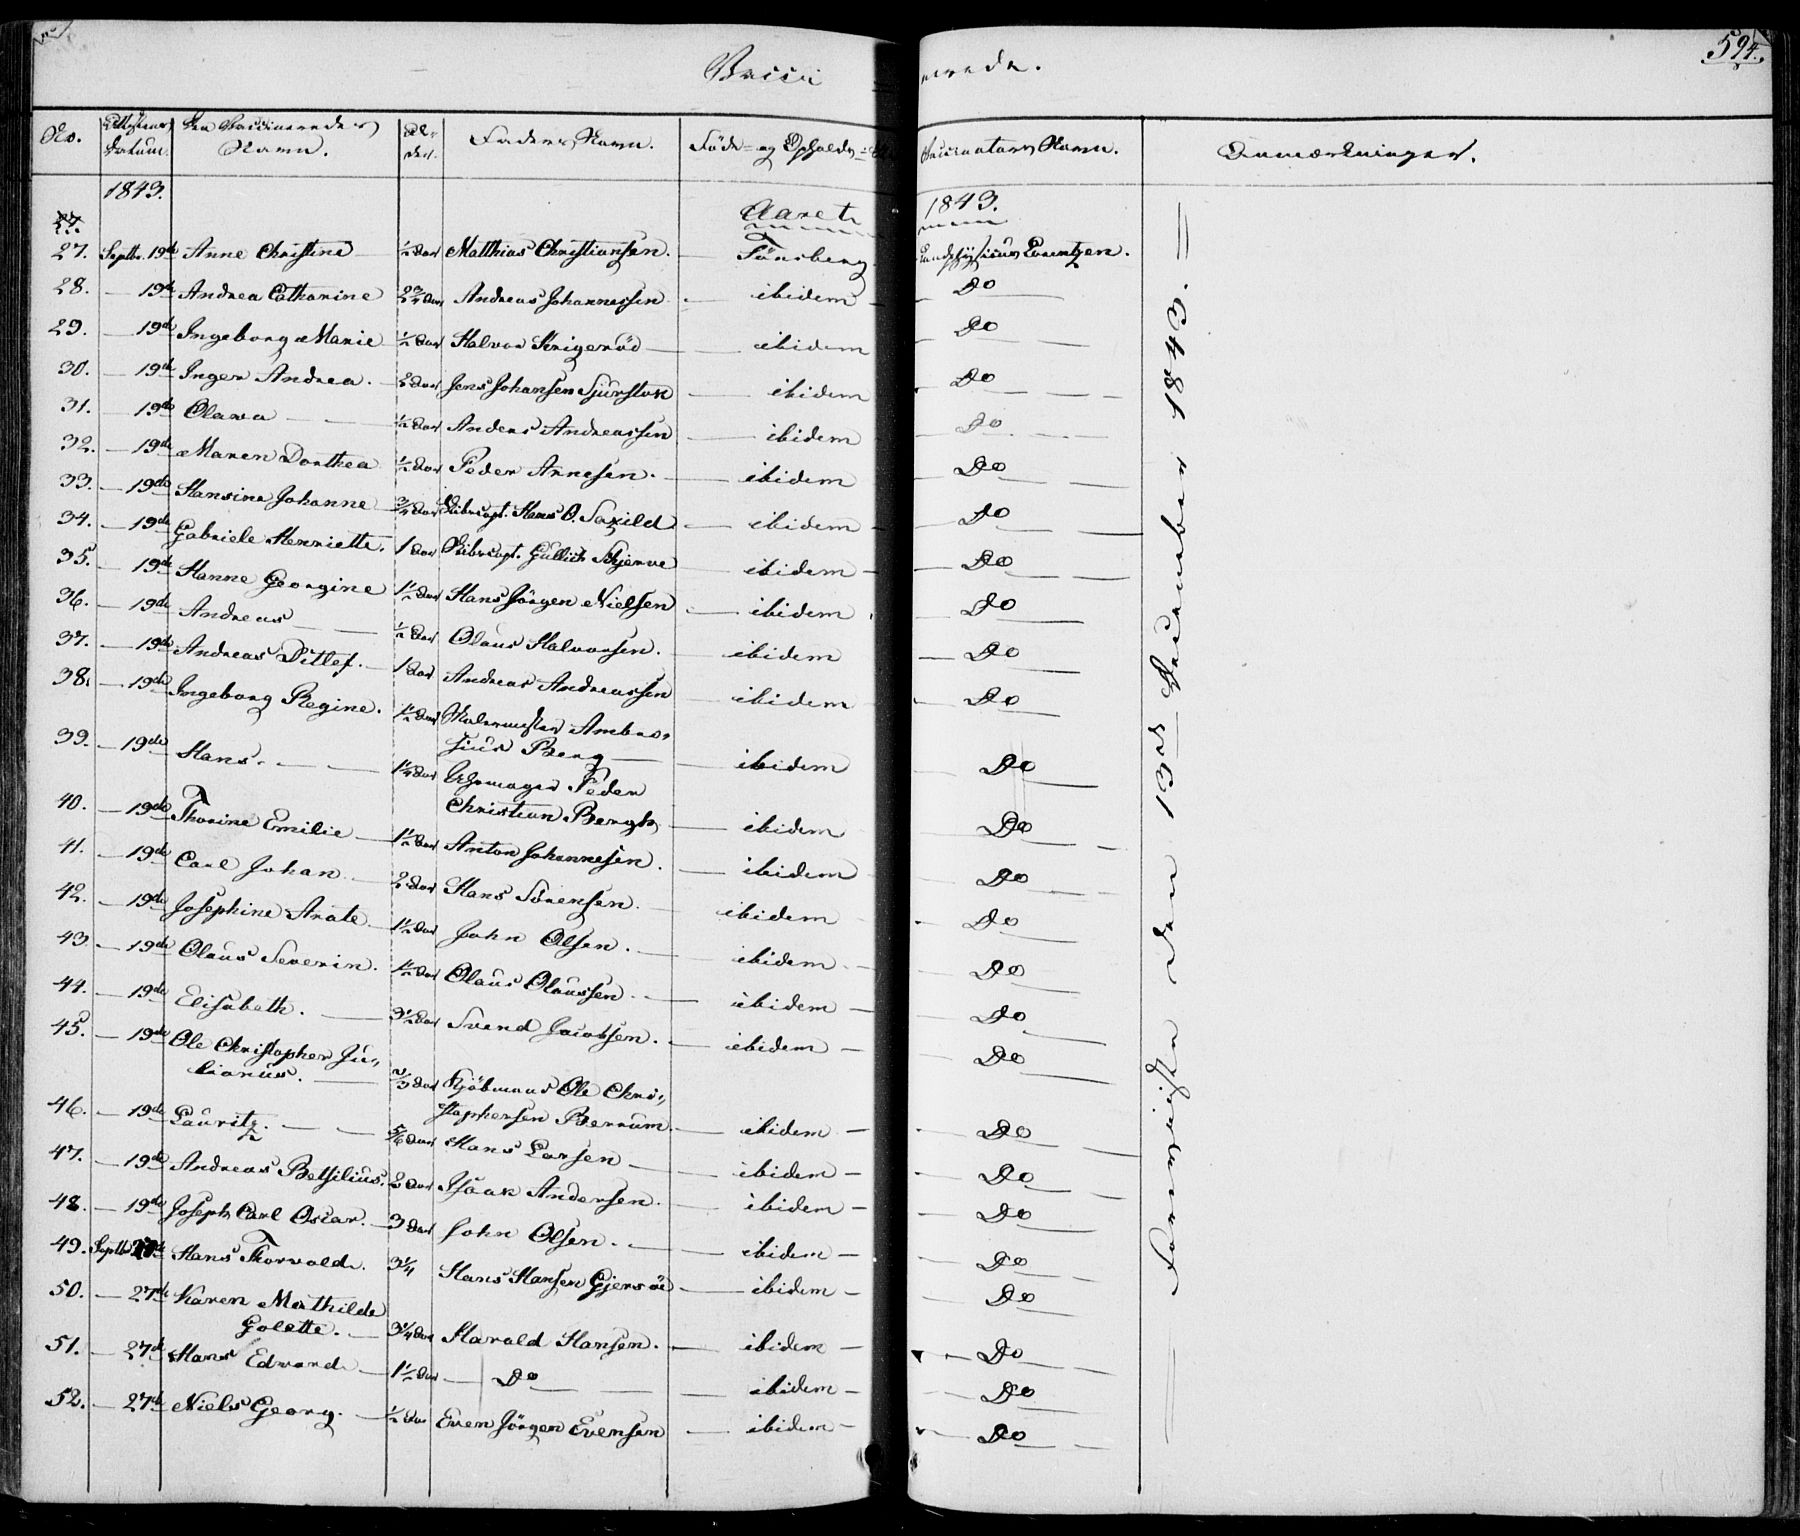 Vacci nerede. 594.
No. Attestens Datum. De Vaccineredes Navn. Al- der. Faders Navn. Föde- og Opholds- Vaccinateurs Navn. Anmærkninger.
1843. Aaret 1843.
27.
27. Septbr. 19de Anne Christine ½ Aar Matthias Christiansen. Tönsberg Landphysicus Lorentzen.
28. — 19de Andrea Catharine 2¾ Aar Andreas Johannessen ibidem — Do
29. — 19de Ingeborg Marie ½ Aar Halvor Krigeröd — ibidem Do
30. — 19de Inger Andrea. 2 Aar Jens Johansen Sjurstok — ibidem Do
31. — 19de Olava — ½ Aar Anders Andreassen — ibidem Do
32. — 19de Maren Dorthea ½ Aar Peder Arnesen. — ibidem Do
33. — 19de Hansine Johanne ¾ Aar Skibscapt. Hans O. Saxild — ibidem — Do
34. — 19de Gabriele Henriette. 1 Aar Skibscapt. Gullich Schjerve — ibidem — Do
35. — 19de Hanne Georgine 1½ Aar Hans Jörgen Nielsen — ibidem Do
36. — 19de Andreas — ½ Aar Olaus Halvorsen. — ibidem Do
37. — 19de Andreas Ditlef. — 1 Aar Andreas Andreassen — ibidem Do
38. — 19de Ingeborg Regine. 1½ Aar Malermester Ambro-
sius Berg — ibidem Do
39. — 19de Hans. — 1¼ Aar
Christian Bergh — ibidem Do
40. — 19de Thorine Emilie — 1½ Aar Anton Johannesen. — ibidem Do
41. — 19de Carl Johan. — 2 Aar Hans Sörensen. — ibidem Do
42. — 19de Josephine Arate 1½ Aar John Olsen. — ibidem — Do
43. — 19de Olaus Severin. 1½ Aar Olaus Olaussen. — ibidem — Do
44. — 19de Elisabeth. — 3½ Aar Svend Jacobsen. — ibidem — Do
45. — 19de Ole Christopher Ju-
lianus. — ⅔ Aar Kjöbmand Ole Chri-
stophersen Berrum. — ibidem — Do
46. — 19de Lauritz. — 5/6 Aar Hans Larsen — ibidem — Do
47. — 19de Andreas Betsilius. 2 Aar Isaak Andersen. — ibidem — Do
48. — 19de Joseph Carl Oscar. — 3 Aar John Olsen. — ibidem — Do
49. Septbr. Hans Thorvald. 3¼ Hans Hansen Gjersöe — ibidem — Do
50. — 27de Karen Mathilde
Golette. — 3¼ Aar Harald Hansen. — ibidem — Do
51. — 27de Hans Edvard. — 1½ Aar — Do — ibidem — Do
52. — 27de Niels Georg. — ½ Aar Even Jörgen Evensen — ibidem — Do
— den 13de December 1843. —